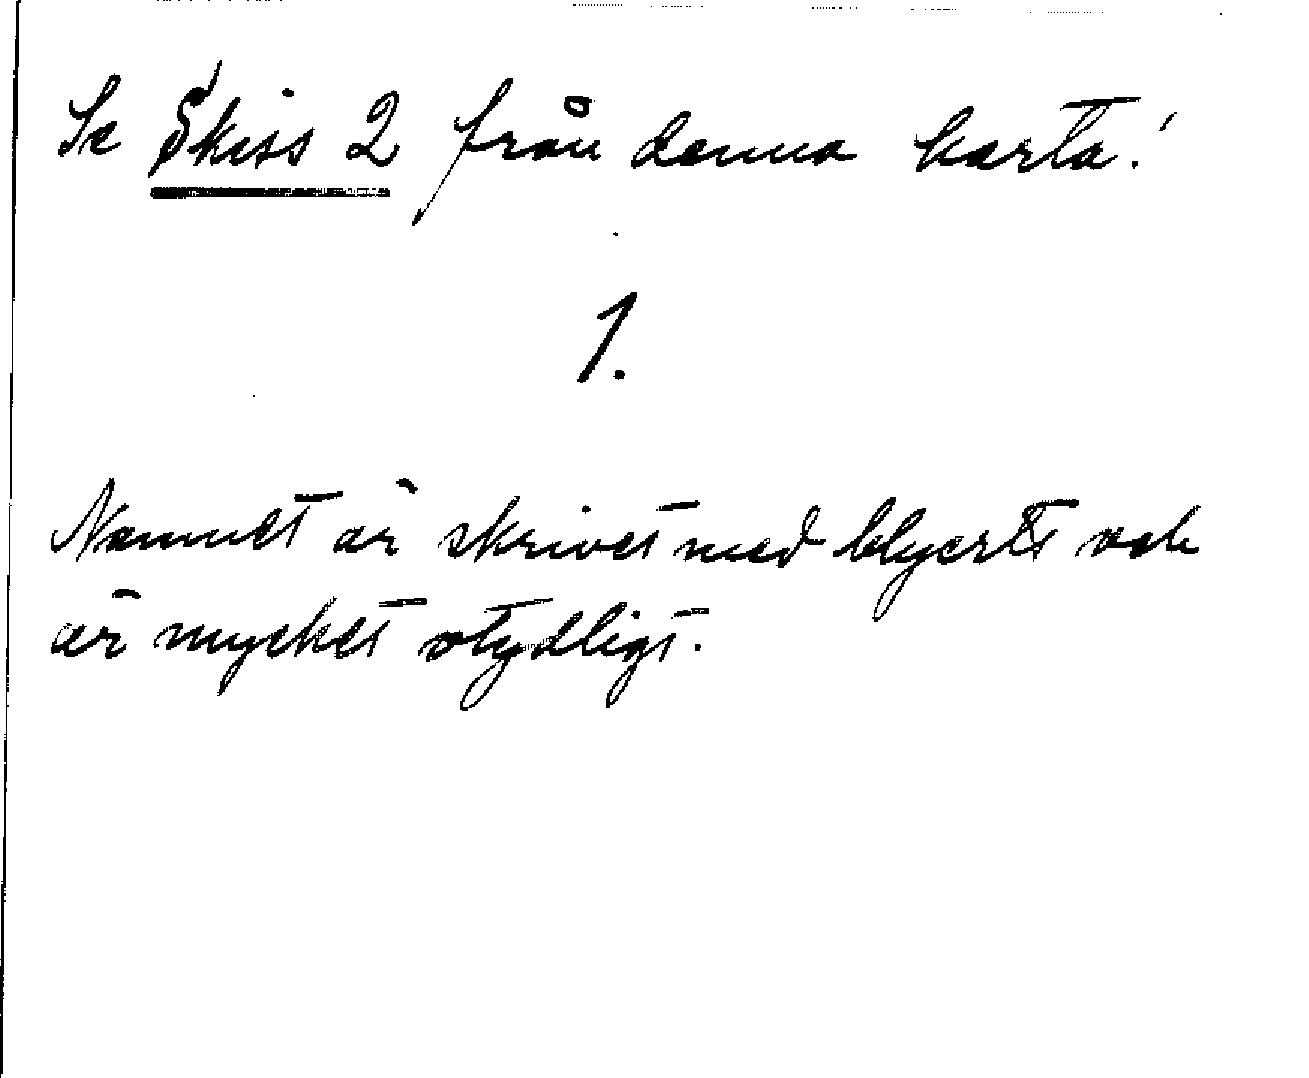 Se Skiss 2 från denna karta!
1.
Namnet är skrivet med blyerts och
är mycket otydligt.